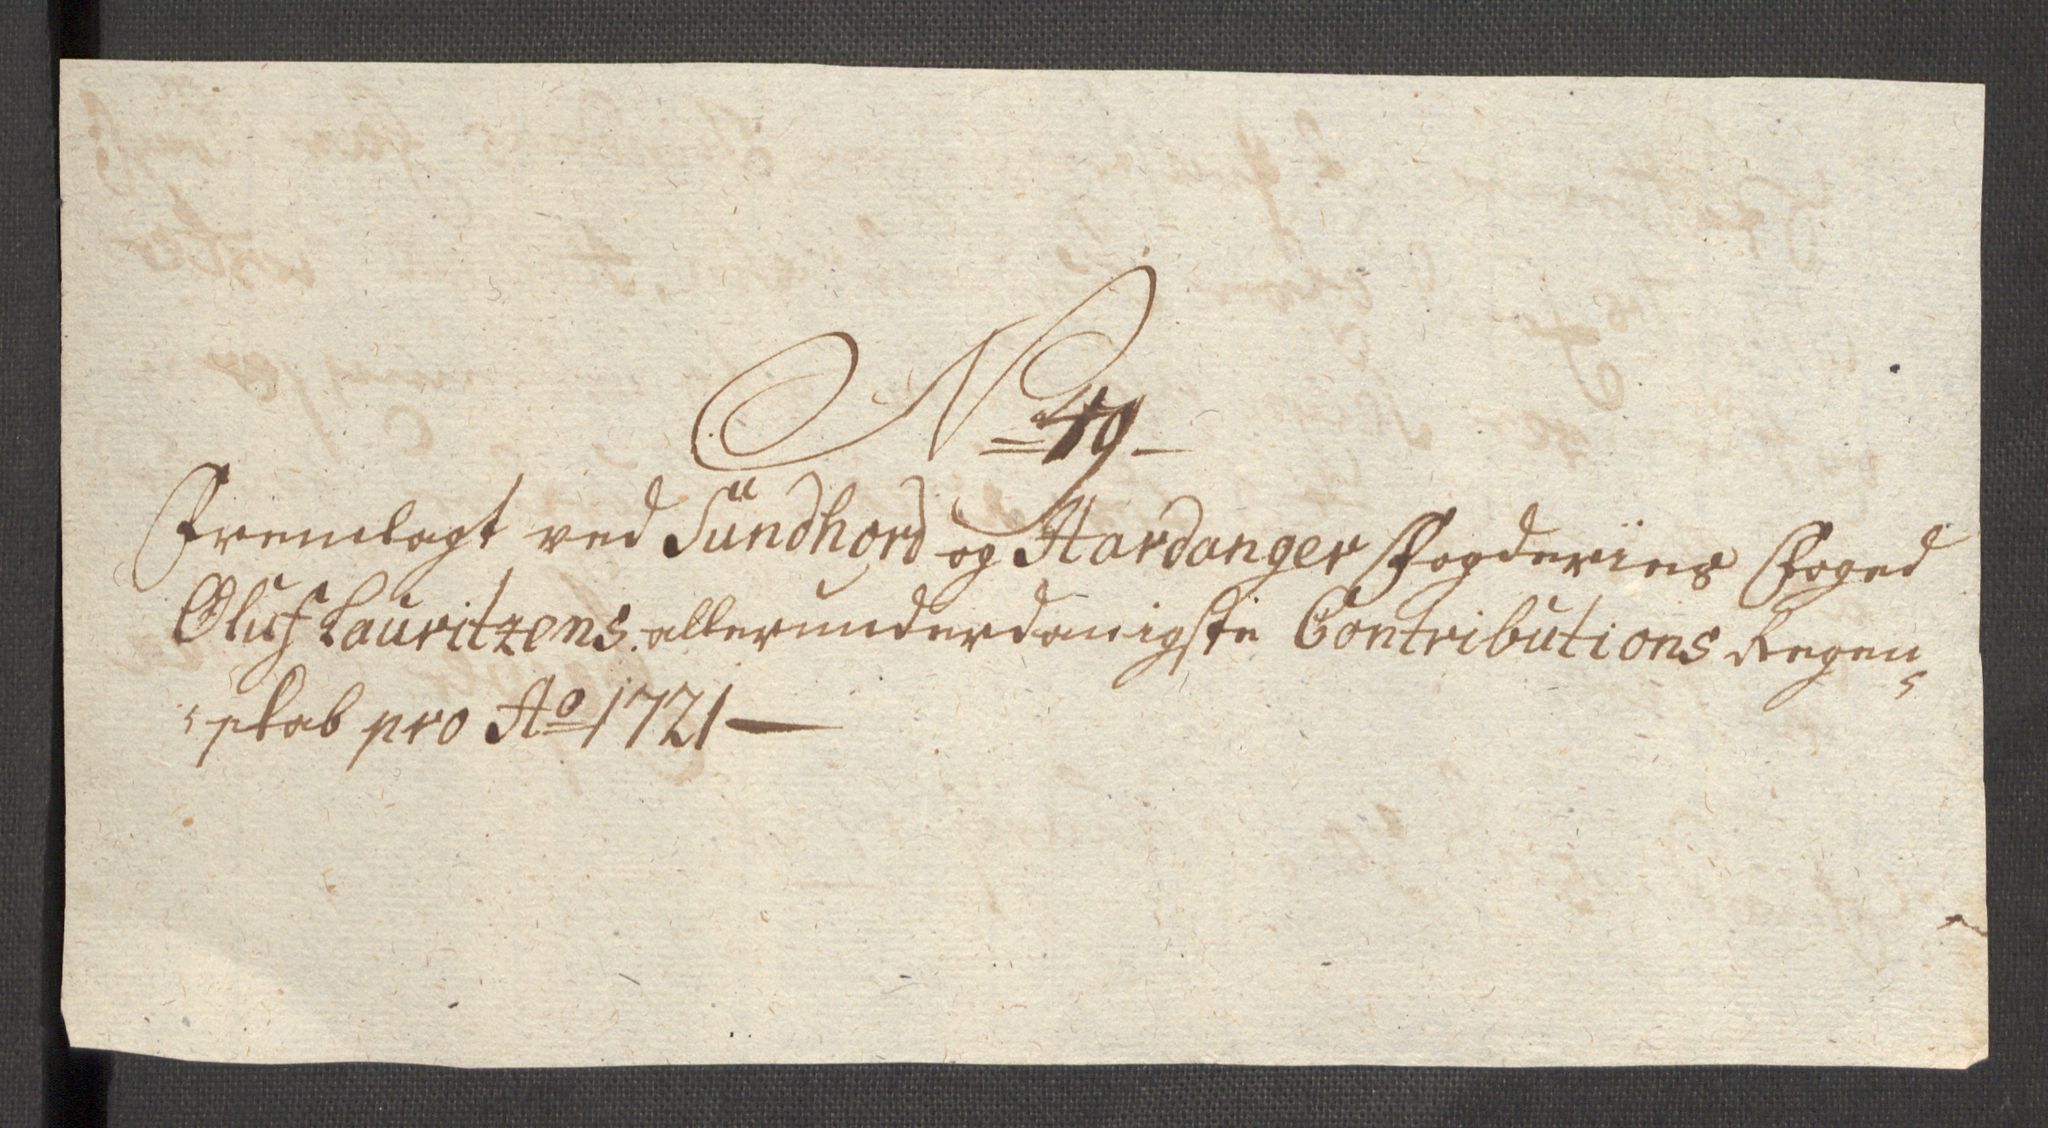 N = 49 –
Fremlagt ved Sundhord og Hardanger Fogderies Foged
Oluf Lauritzens allerunderdanigste Contributions Regen-
skab pro Ao 1721 —